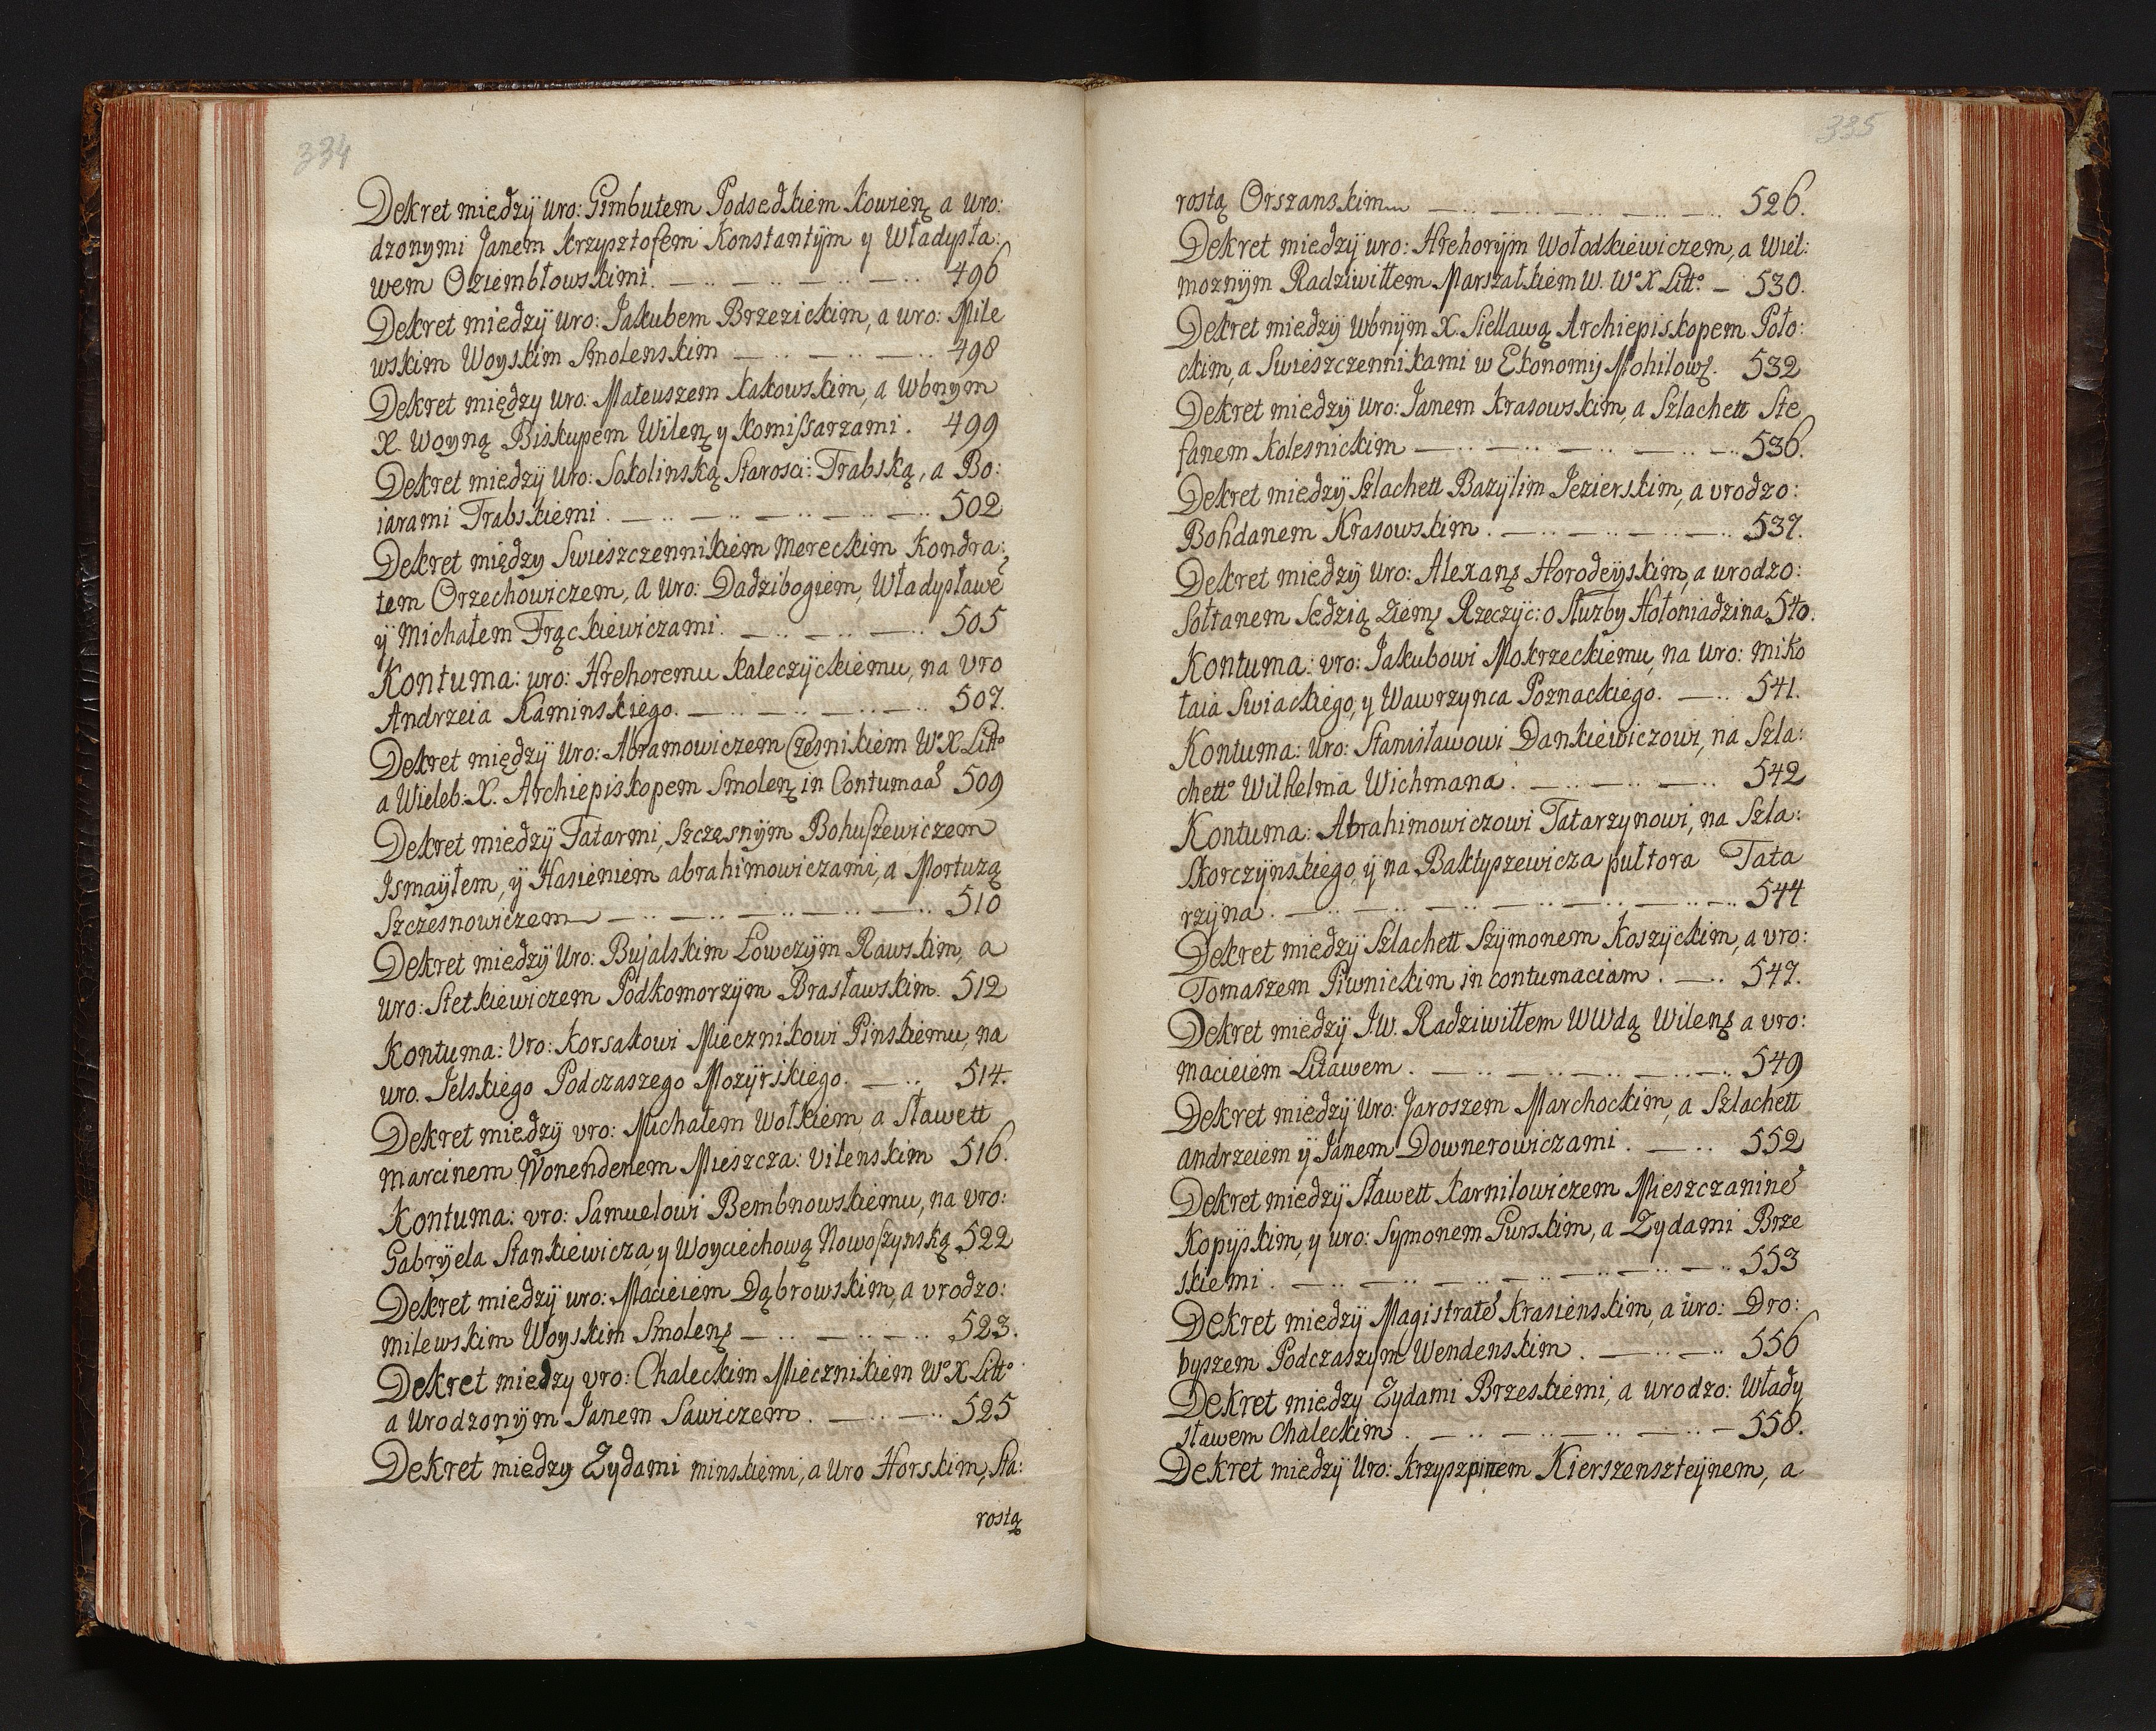 334
Dekret miedzÿ uro: Gimbutem Podsedkiem Kowieņ a uro:
dzonymi Janem Krzysztofem Konstantÿm y Władysła:
wem Oziembłowskimi. 496
Dekret miedzÿ uro: Jakubem Brzezickim, a uro: Mile
wskim Woyskim Smolenskim 498
Dekret między uro: Mateuszem Kakowskim, a Wbnym
X. Woyną Biskupem Wileņ y Komissarzami. 499
Dekret miedzÿ uro: Sokolinską Starosci: Trabską, a Bo:
iarami Trabskiemi. 502
Dekret między Swieszczennikiem Mereckim Kondra:
tem Orzechowiczem, a uro: Dadzibogiem, Władysławē
ÿ Michałem Frąckiewiczami. 505
Kontuma: uro: Hrehoremu Kaleczÿckiemu, na vro
Andrzeia Kaminskiego. 507.
Dekret między uro: Abramowiczem Czesnikiem Wº X Littº
a Wieleb: X. Archiepiskopem Smoleņ in Contumaā 509
Dekret miedzÿ Tatarmi, Szczęsnÿm Bohuszewiczem
Ismaÿłem, ÿ Hasieniem abrahimowiczami, a Mortuzą
Szczesnowiczem 510
Dekret miedzÿ Uro: Bujalskim Łowczÿm Rawskim, a
uro: Stetkiewiczem Podkomorzÿm Brasławskim. 512
Kontuma: Vro: Korsakowi Miecznikowi Pinskiemu, na
uro. Jelskiego Podczaszego Mozÿrskiego. 514.
Dekret miedzÿ vro: Michałem Wołkiem, a Sławett
Marcinem Wonendenem Mieszcza: Vilenskim 516.
Kontuma: vro: Samuelowi Bembnowskiemu, na vro:
Gabrÿela Stankiewicza, y Woyciechową Nowoszynską 522
Dekret miedzÿ uro: Macieiem Dąbrowskim, a vrodzo:
milewskim Woyskim Smoleņ 523.
Dekret miedzy vro: Chaleckim Miecznikiem Wº X Littº
a Urodzonÿm Janem Sawiczem. 525
Dekret miedzy Zydami minskiemi, a Uro Horskim, Sta:
rostą
335
rostą Orszanskim 526.
Dekret miedzÿ uro: Hrehorÿm Wołodkiewiczem, a Wiel:
moznÿm Radziwiłłem Marszałkiem W. Wº X Littº 530.
Dekret miedzÿ Wbnÿm X. Siellawą Archiepiskopem Poło:
ckim, a Swieszczennikami w Ekonomij Mohilowş. 532
Dekret miedzÿ uro: Janem Krasowskim, a Szlachett Ste
fanem Kolesnickim 536.
Dekret miedzÿ Szlachett Bazylim Jezierskim, a vrodzo:
Bohdanem Krasowskim. 537.
Dekret miedzÿ uro: Alexanş Horodeÿskim, a urodzo:
Sołtanem Sedzią Ziemş Rzeczÿc: o Służby Hołoniadzina 540.
Kontuma: vro: Jakubowi Mokrzeckiemu, na uro: miko
łaia Swiackiego, y Wawrzynca Poznackiego. 541.
Kontuma: uro: Stanisławowi Dankiewiczowi, na Szla:
chettº Wilhelma Wichmana. 542
Kontuma: Abrahimowiczowi Tatarzynowi, na Szla:
Skorczÿnskiego, ÿ na Baktyszewicza pułtora Tata
rzÿna. 544
Dekret miedzÿ Szlachett Szÿmonem Koszÿckim, a vro:
Tomaszem Piwnickim in contumaciam. 547.
Dekret miedzÿ JW. Radziwiłłem WWdą Wilenş a vro:
macieiem Litawem. 549
Dekret miedzÿ Uro: Jaroszem Marchockim, a Szlachett
andrzeiem ÿ Janem Downerowiczami. 552
Dekret miedzÿ Sławett Karniłowiczem Mieszczaninē
Kopÿskim, y uro: Symonem Gurskim, a Zydami Brze
skiemi. 553
Dekret miedzÿ Magistratē Krasienskim, a uro: Dro:
byszem Podczaszym Wendenskim. 556
Dekret miedzy Zydami Brzeskiemi, a urodzo: Włady
sławem Chaleckim. 558.
Dekret miedzÿ Uro: Krzyszpinem Kierszenszteÿnem, a